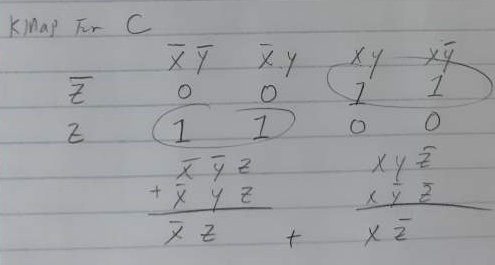 KMap For C
X̅ Y̅ X̅ y x y x y̅
Z̅ 0 0 1 1
Z 1 1 0 0
X̅ Y̅ Z x y Z̅
+ X̅ y Z x y̅ Z̅
X̅ Z + x Z̅